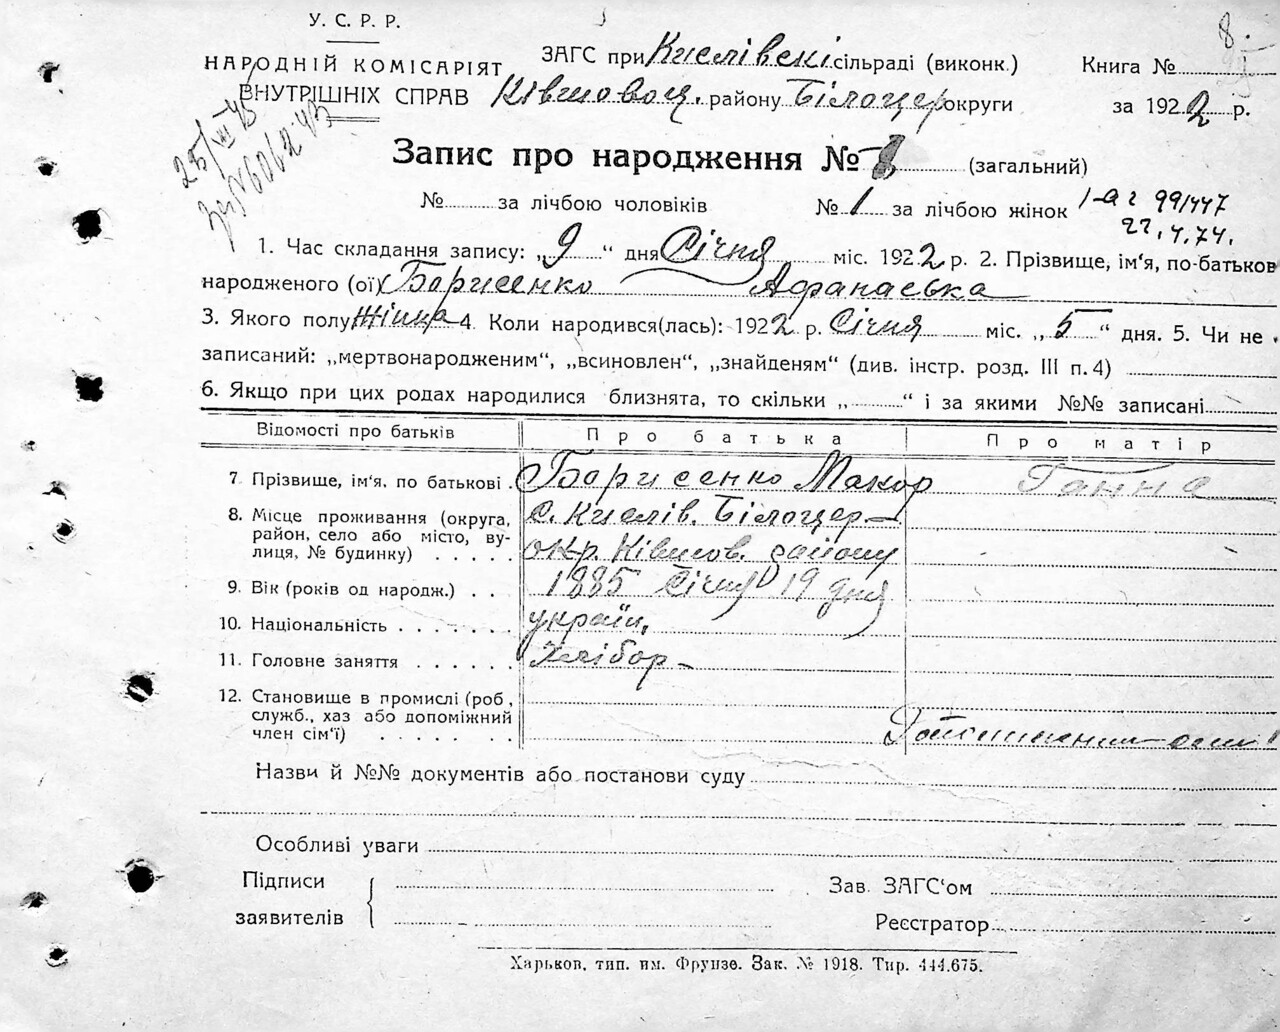 У. С. Р. Р.
НАРОДНІЙ КОМІСАРІЯТ
ВНУТРІШНІХ СПРАВ
ЗАГС при Киелівскі сільраді (виконк.)
Ківшовоц. району Білоцер округи
8.
Книга №
за 1922 р.
25/VII 43
Запис про народження № 8 (загальний)
№ за лічбою чоловіків № 1 за лічбою жінок
99/447
22.4.74.
1. Час складання запису: „9“ дня Січня міс. 1922 р. 2. Прізвище, ім‘я, по-батьков
народженого (ої) Борисенко Афанаська
3. Якого полу Жінка 4. Коли народився(лась): 1922 р. Січня міс. „5“ дня. 5. Чи не
записаний: „мертвонародженим“, „всиновлен“, „знайденям“ (див. інстр. розд. III п. 4)
6. Якщо при цих родах народилися близнята, то скільки „ “ і за якими №№ записані
Відомості про батьків Про батька Про матір
7 Прізвище, ім‘я, по батькові. Борисенко Макор Ганна
8. Місце проживання (округа, с. Киелів. Білоцер–
район, село або місто, ву-
лиця, № будинку) . . . . окр. Ківшов. району
9. Вік (років од народж.) . . 1885 Січня 19 дня
10. Національність . . . . . . україн.
11. Головне заняття . . . . . . Хлібор–
12. Становище в промислі (роб,
служб., хаз або допоміжний
член сім‘ї) . . . . . .
Назви й №№ документів або постанови суду
Особливі уваги
Підписи
заявителів
Зав. ЗАГС‘ом
Реєстратор
Харьков, тип. им. Фрунзе. Зак. № 1918. Тир. 444.675.